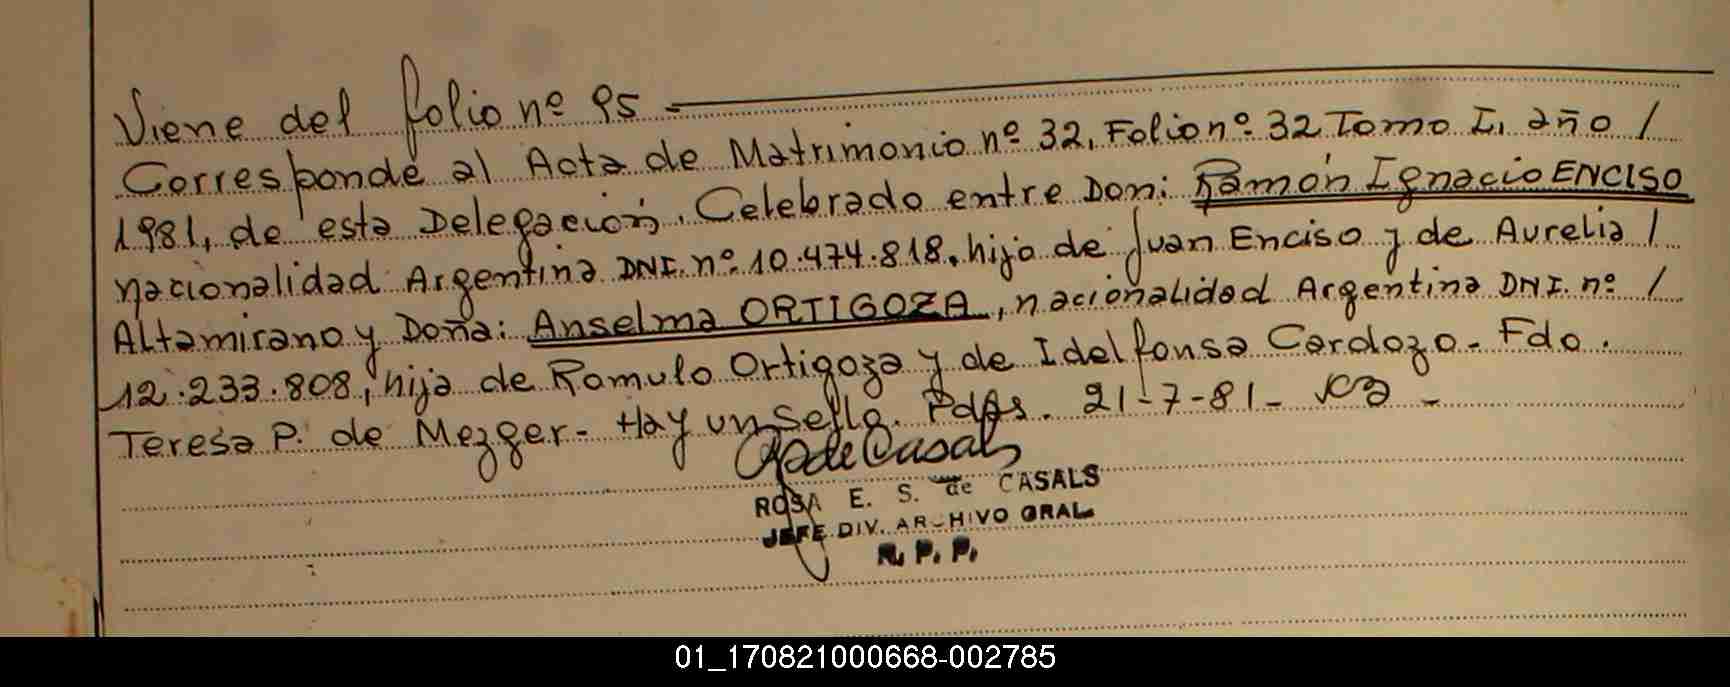 Viene del folio nº 95 -
Corresponde al Acta de Matrimonio nº 32, Folio nº 32 Tomo I, año /
1981, de esta Delegación. Celebrado entre Don: Ramón Ignacio ENCISO
nacionalidad Argentina DNI. nº 10.474.818, hijo de Juan Enciso y de Aurelia /
Altamirano y Doña: Anselma ORTIGOZA, nacionalidad Argentina DNI. nº /
12.233.808, hija de Romulo Ortigoza y de Idelfonsa Cardozo - Fdo.
Teresa P. de Mezger - Hay un sello. Pdas. 21-7-81 -
de Casals
ROSA E. S. de CASALS
JEFE DIV. ARCHIVO GRAL.
R. P. P.
01_170821000668-002785